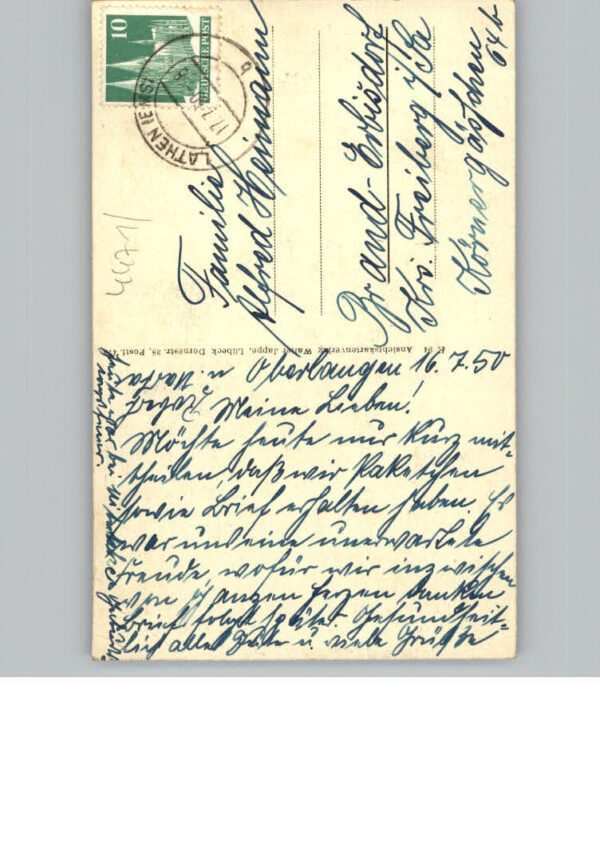 10
DEUTSCHE POST
LATHEN (EMS)
17.7.50
b
4471/
Familie
Alfred Heimann
Brand-Erbisdorf
Krs. Freiberg i/Sa
Körnergäßchen
64 b
Ansichtskartenverlag Walter Jappe, Lübeck Dornestr. 88, Postf.
Oberlangen 16.7.50
Meine Lieben!
Möchte heute nur kurz mit-
theilen, daß wir Paketchen
sowie Brief erhalten haben. Es
war uns eine unerwartete
Freude, wofür wir inzwischen
von ganzen Herzen danken
Brief folgt später. Gesundheit-
lich alles Gute u. viele Grüße
u.